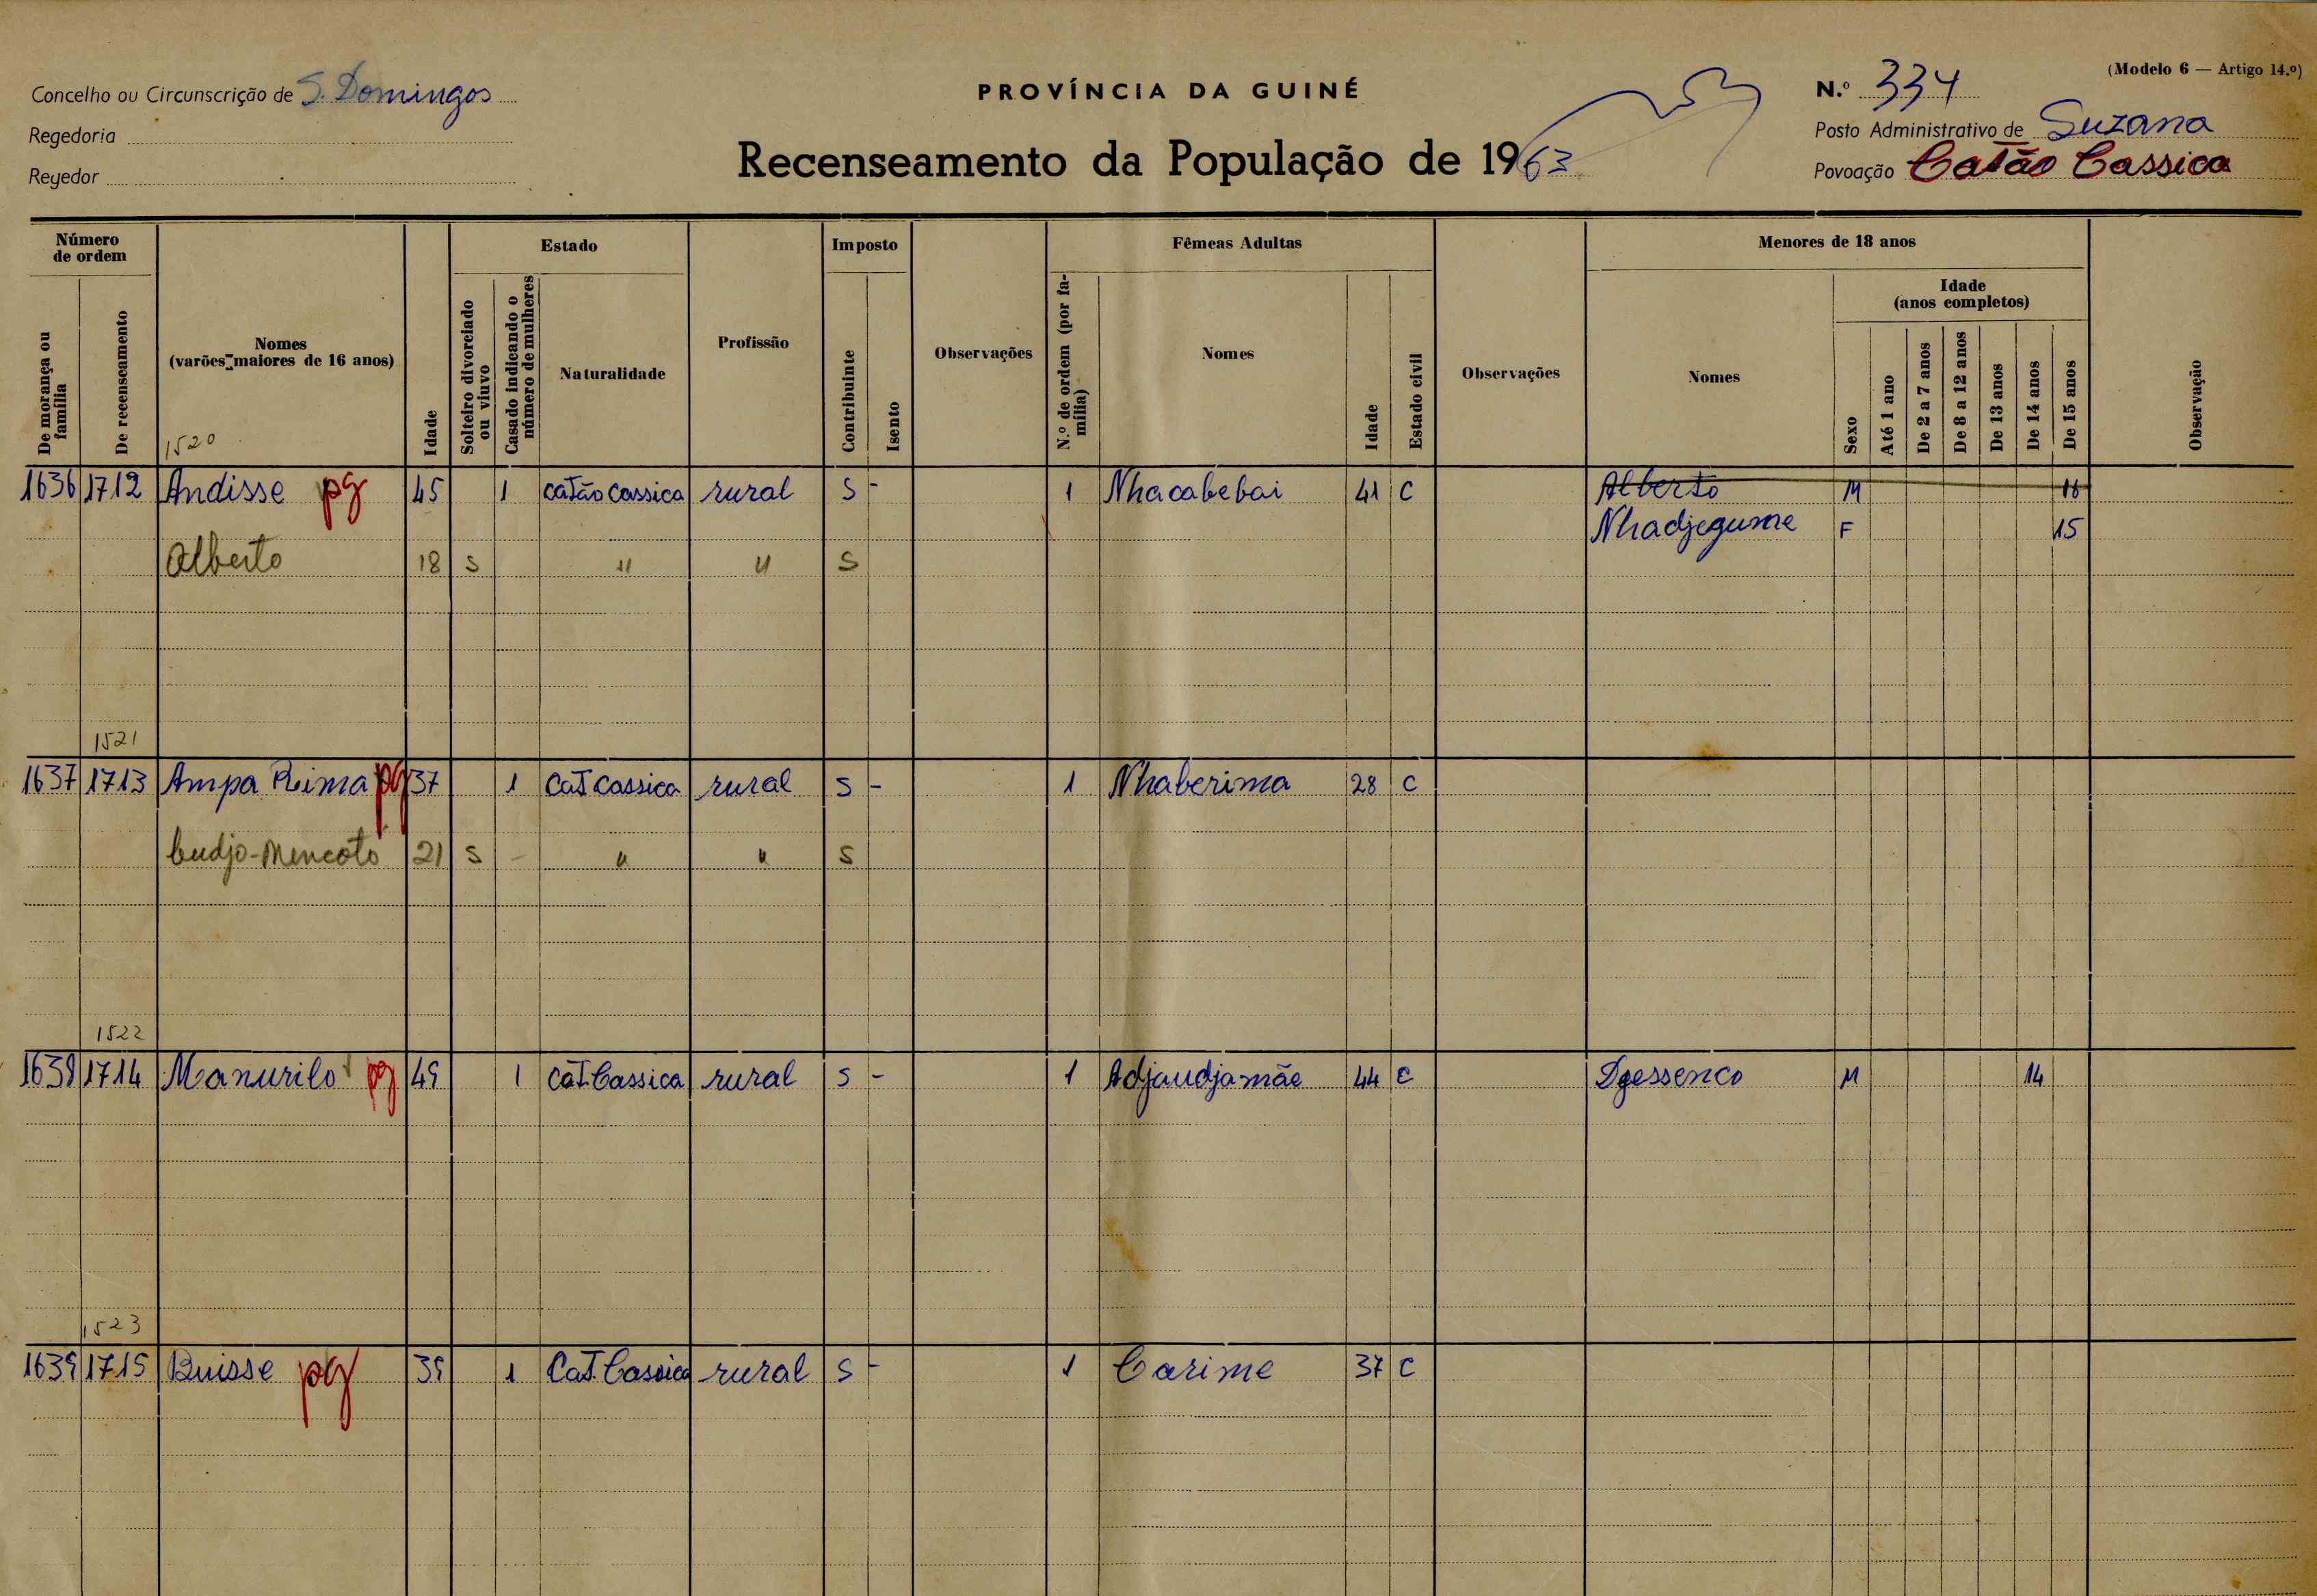 (Modelo 6 — Artigo 14.º)
Concelho ou Circunscrição de S. Domingos
PROVÍNCIA DA GUINÉ
N.º 334
Regedoria
Posto Administrativo de Suzana
Regedor
Recenseamento da População de 1963
Povoação Catão Cassica
Número de ordem
Estado
Imposto
Fêmeas Adultas
Menores de 18 anos
De morança ou família
De recenseamento
Nomes (varões maiores de 16 anos)
Idade
Solteiro divorciado ou viuvo
Casado indicando o número de mulheres
Naturalidade
Profissão
Contribuinte
Isento
Observações
N.º de ordem (por família)
Nomes
Idade
Estado civil
Observações
Nomes
Sexo
Idade (anos completos)
Até 1 ano
De 2 a 7 anos
De 8 a 12 anos
De 13 anos
De 14 anos
De 15 anos
Observação
1520
1636 1712 Andisse pg 45 1 Catão Cassica rural S - 1 Nhacabebai 41 C Alberto M 16
Nhadjegume F 15
Alberto 18 S " " S
1521
1637 1713 Ampa Reima pg 37 1 Cat Cassica rural S - 1 Nhaberima 28 C
Cudjo-Mencoto 21 S - " " S
1522
1638 1714 Manurilo pg 49 1 Cat. Cassica rural S - 1 Adjaudjamãe 44 C Dgessenco M 14
1523
1639 1715 Buisse pg 39 1 Cat. Cassica rural S - 1 Carime 37 C